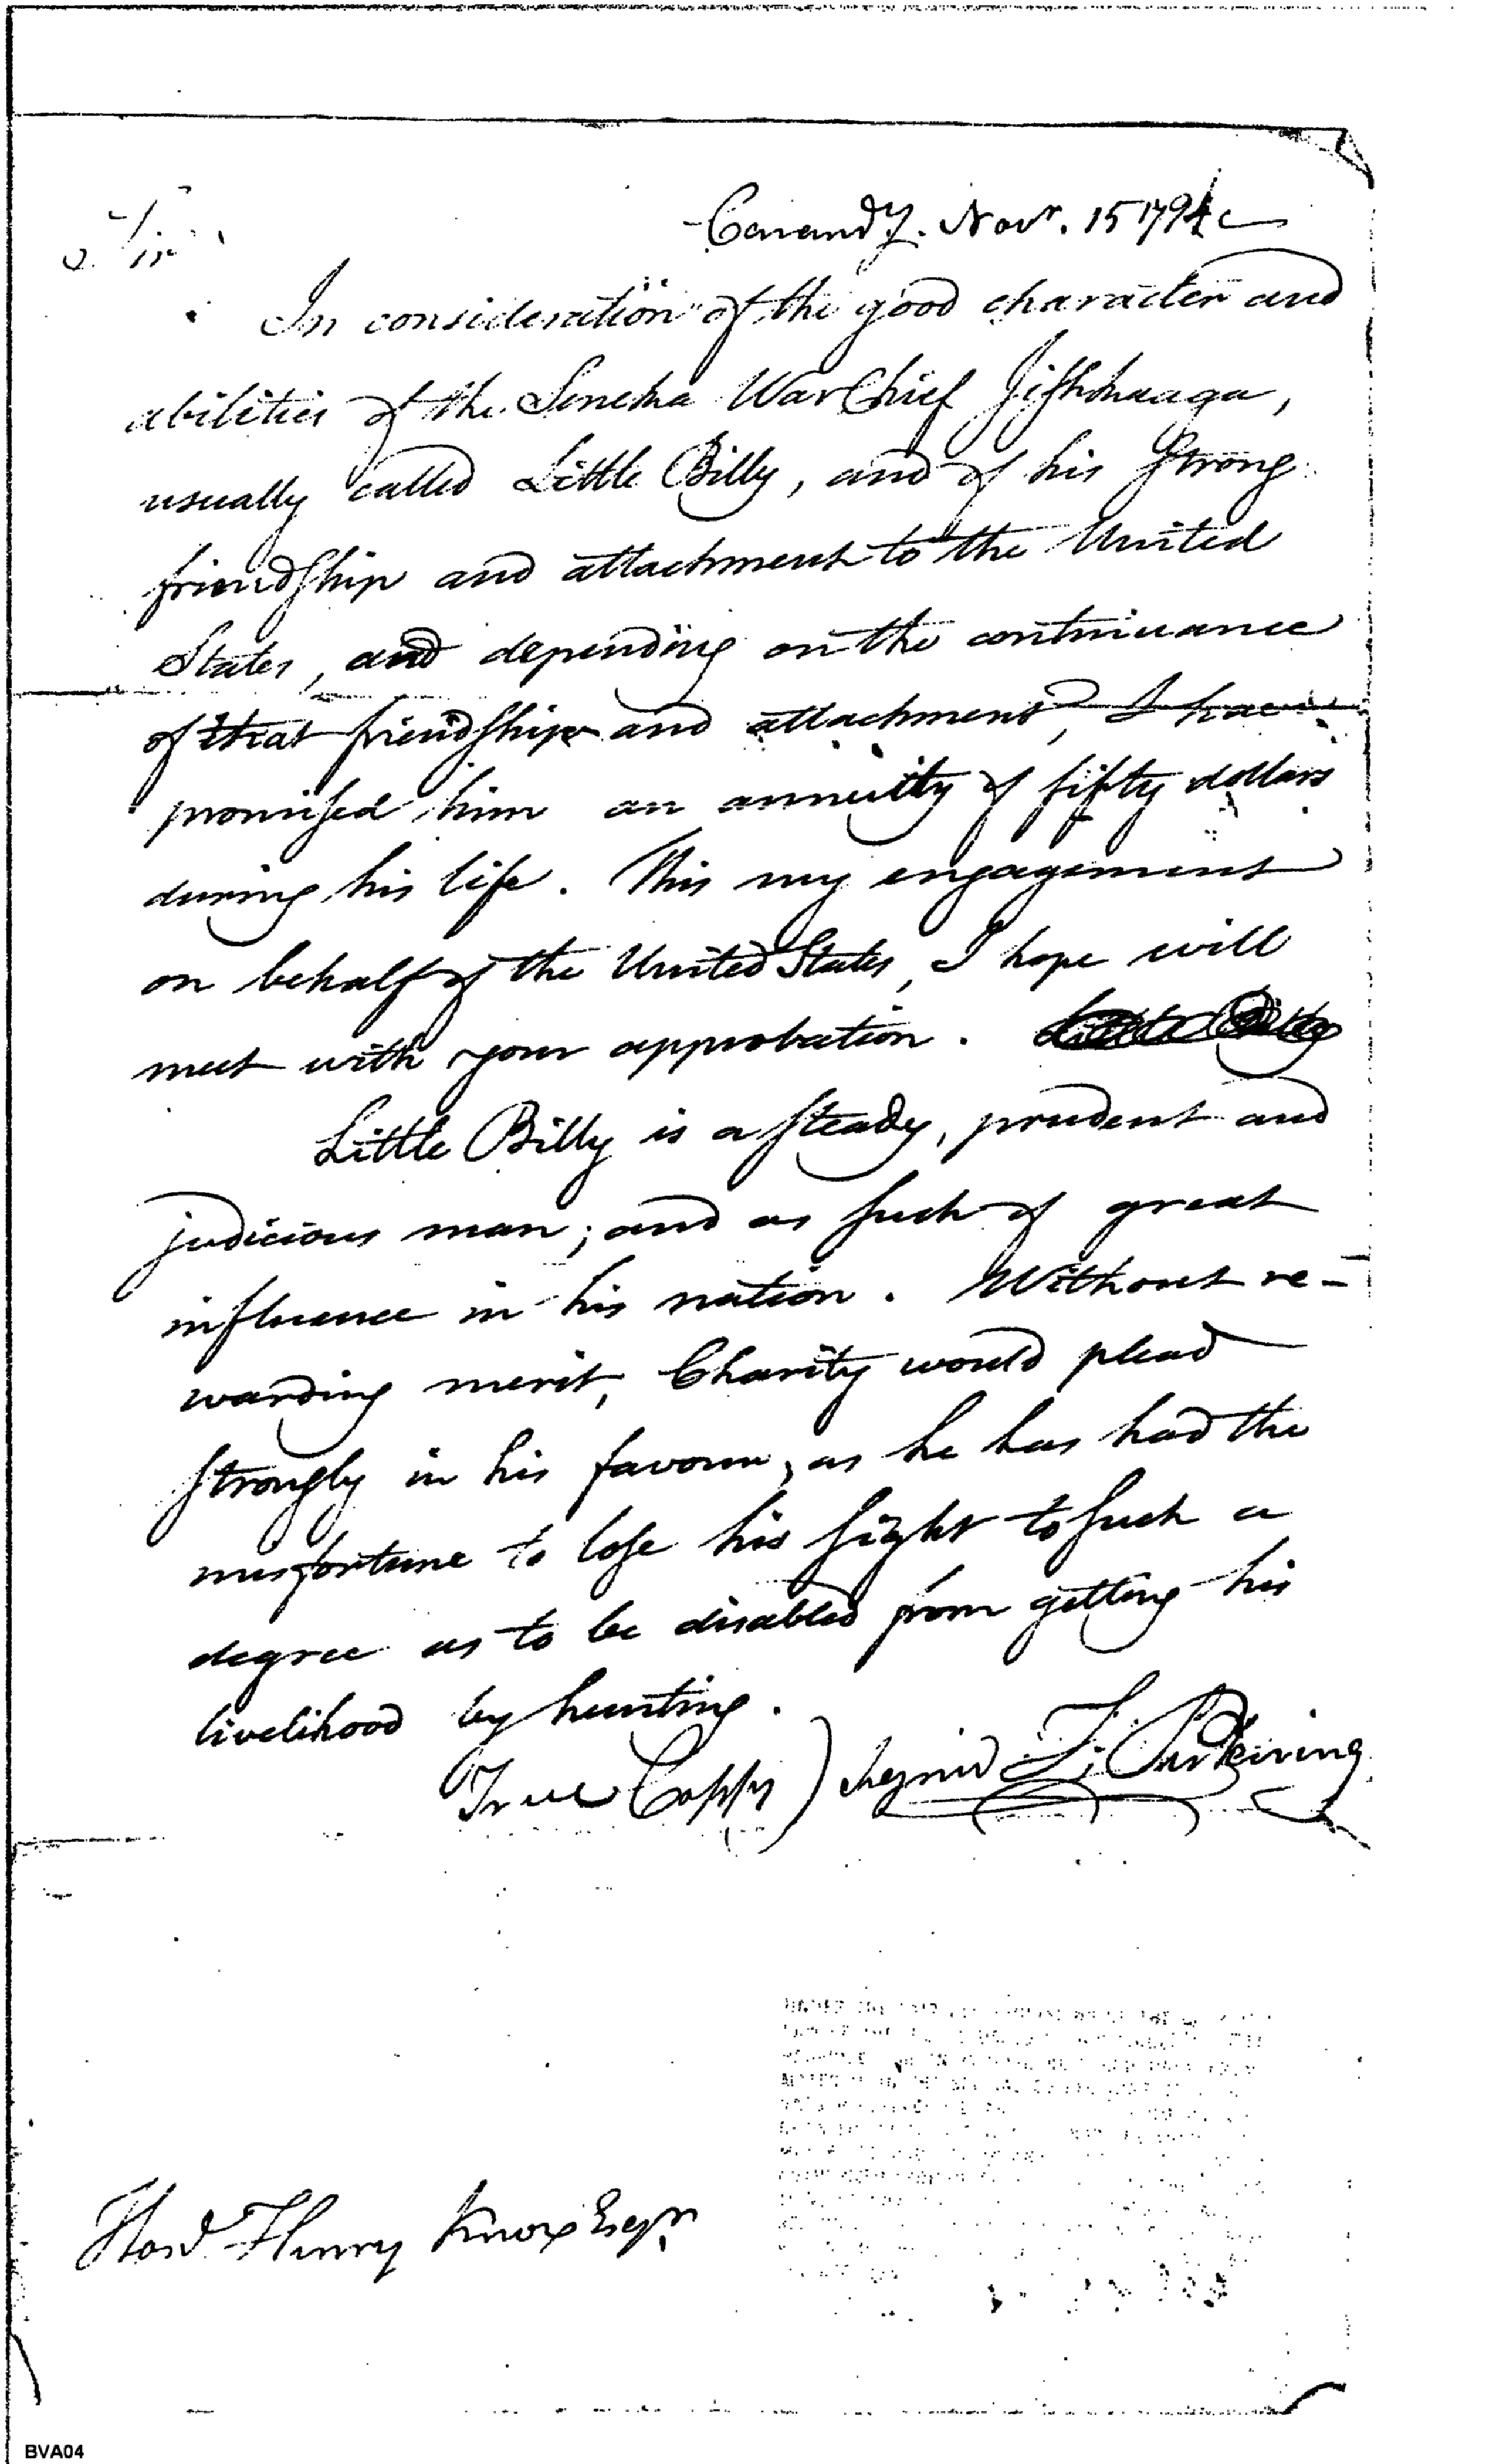 Canandy. Novr. 15 1794
Sir
In consideration of the good character and
abilities of the Seneka War Chief Jishkaaga,
usually called Little Billy, and of his strong
friendship and attachment to the United
States, and depending on the continuance
of that friendship and attachment, I have
promised him an annuity of fifty dollars
during his life. This my engagement
on behalf of the United States, I hope will
meet with your approbation.
Little Billy is a steady, prudent and
judicious man; and as such of great
influence in his nation. Without re-
warding merit, Charity would plead
strongly in his favour, as he has had the
misfortune to lose his sight to such a
degree as to be disabled from getting his
livelihood by hunting.
True Coppy) Signed T. Pickering
Hond. Henry Knox Esqr.
BVA04